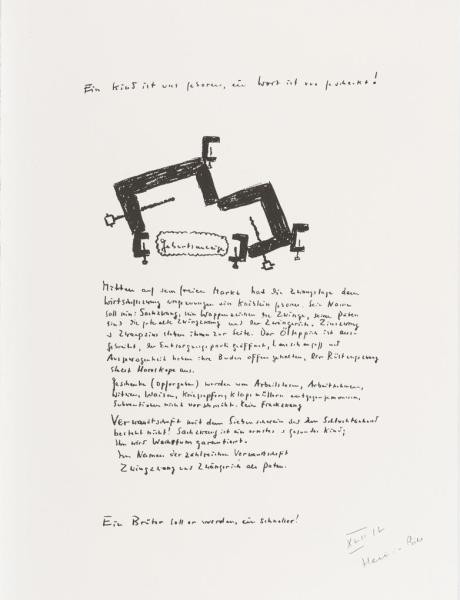 Ein Kind ist uns geboren, ein Wort ist uns geschenkt!
Geburtsanzeige
Mitten auf dem freien Markt hat die Zwangslage dem
Wirtschaftszwang ein Knäblein geboren. Sein Name
soll sein: Sachzwang, sein Wappenzeichen die Zwinge, seine Paten
sind die Zwingzwang und der Zwingerich. Zinszwang
Zwangszins stehen ihm zur Seite. Der Ölteppich ist aus-
gebreitet, der Entsorgungspark geöffnet, und
Ausgewogenheit haben ihre Buden offen gehalten, Der Rüstungszwang
Horoskope aus.
Geschenke (Opfergaben) werden von Arbeitslosen, Arbeitnehmern,
Witwen, Waisen, entgegengenommen,
Subventionen nicht verschmäht. Kein Frackzwang
Verwandtschaft mit dem
besteht nicht! Sachzwang ist ein ernstes gesundes Kind;
ihm wird Wachstum garantiert.
Im Namen der zahlreichen Verwandtschaft
Zwingzwang und Zwängerich als Paten.
Ein Brüter soll er werden, ein schneller!